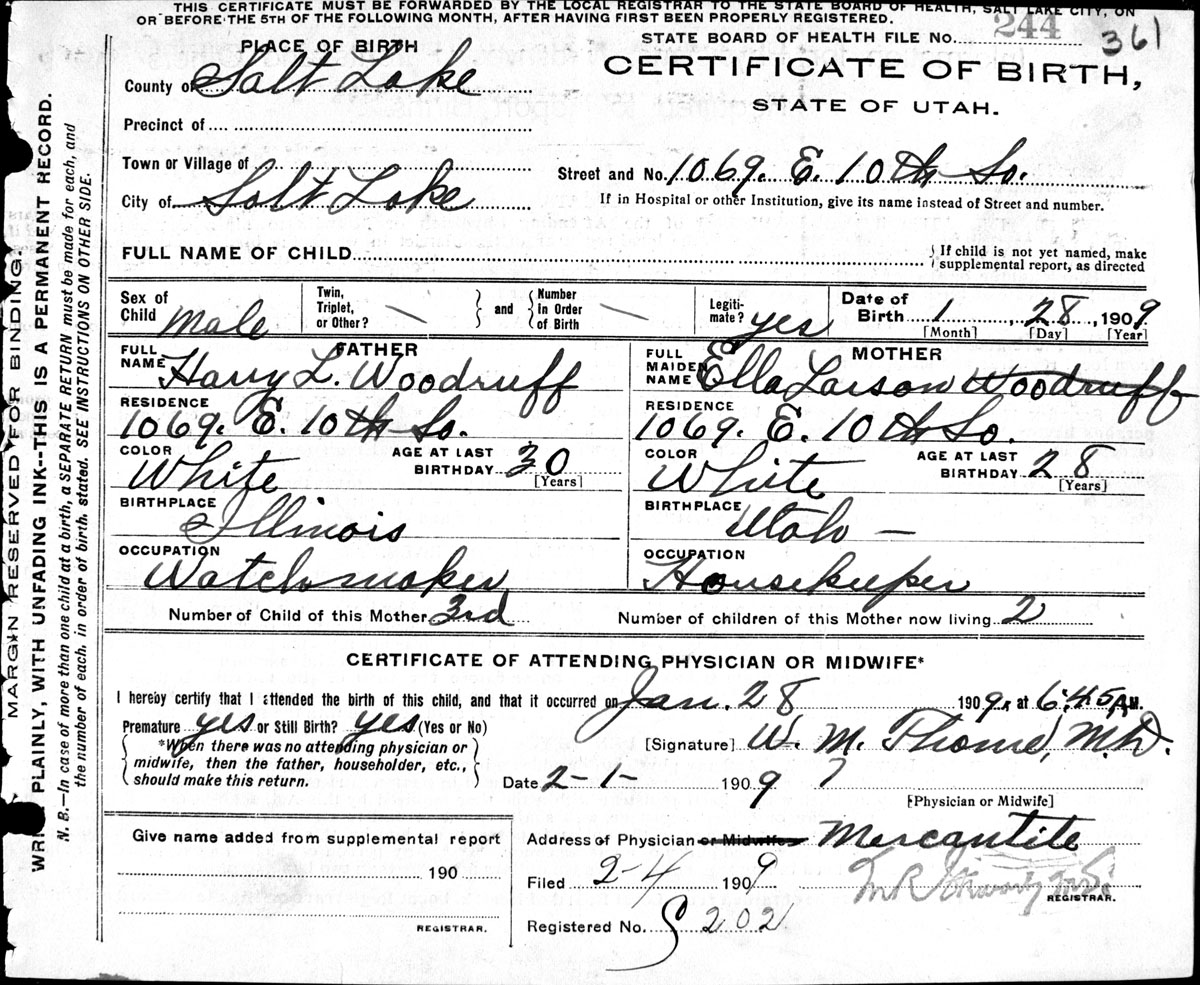 THIS CERTIFICATE MUST BE FORWARDED BY THE LOCAL REGISTRAR TO THE STATE BOARD OF HEALTH, SALT LAKE CITY, ON
OR BEFORE THE 5TH OF THE FOLLOWING MONTH, AFTER HAVING FIRST BEEN PROPERLY REGISTERED.
STATE BOARD OF HEALTH FILE No. 244 361
PLACE OF BIRTH
CERTIFICATE OF BIRTH,
STATE OF UTAH.
County of Salt Lake
Precinct of
Town or Village of
Street and No. 1069. E. 10th So.
City of Salt Lake
If in Hospital or other Institution, give its name instead of Street and number.
FULL NAME OF CHILD
If child is not yet named, make
supplemental report, as directed
Sex of Child Male
Twin, Triplet, or Other? — and Number In Order of Birth —
Legiti-mate? yes
Date of Birth 1, 28, 1909
[Month] [Day] [Year]
FATHER
FULL NAME Harry L. Woodruff
RESIDENCE
1069. E. 10th So.
COLOR White AGE AT LAST BIRTHDAY 30
[Years]
BIRTHPLACE
Illinois
OCCUPATION
Watchmaker
MOTHER
FULL MAIDEN NAME Ella Larson Woodruff
RESIDENCE
1069. E. 10th So.
COLOR White AGE AT LAST BIRTHDAY 28
[Years]
BIRTHPLACE
Utah —
OCCUPATION
Housekeeper
Number of Child of this Mother 3rd Number of children of this Mother now living 2
CERTIFICATE OF ATTENDING PHYSICIAN OR MIDWIFE*
I hereby certify that I attended the birth of this child, and that it occurred on Jan. 28 1909, at 6:45 A.M.
Premature yes or Still Birth? yes (Yes or No)
*When there was no attending physician or
midwife, then the father, householder, etc.,
should make this return.
[Signature] W. M. Thome, M.D.
Date 2-1- 1909
[Physician or Midwife]
Give name added from supplemental report
190
REGISTRAR.
Address of Physician or Midwife Mercantile
Filed 2-4 1909
REGISTRAR.
Registered No. S 202
MARGIN RESERVED FOR BINDING.
PLAINLY, WITH UNFADING INK--THIS IS A PERMANENT RECORD.
N. B.—In case of more than one child at a birth, a SEPARATE RETURN must be made for each, and
the number of each, in order of birth, stated. SEE INSTRUCTIONS ON OTHER SIDE.